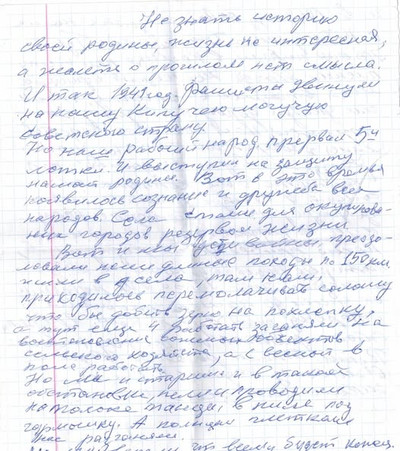 Не знать историю
своей родины, жизнь не интересная,
а жалеть о прошлом нет смысла.
И так 1941 год. Фашисты двинули
на нашу Кипучею могучую
Советскую страну
Но наш рабочий народ прервал 5-ч
и выступил на защиту
нашей родины. Вот в это время
появилось сознание и дружба всех
народов. Села стали для окупирова-
ных городов резервом жизни
Вот и мы дети войны, преодо-
левали пешие длиные походы по 150 км
жили в селах
приходилось перемолачивать солому
что бы добыть зерно на похлебку,
а тут еще и работать загоняли на
востановление объектов
сельского хозяйства, а с весной в
поле работать
Но мы и старшие и в такой
обстановке, пели и проводили
на толоке танцы, в пыле под
гармошку. А полицаи плетками
нас разгоняли.
что всему будет конец.